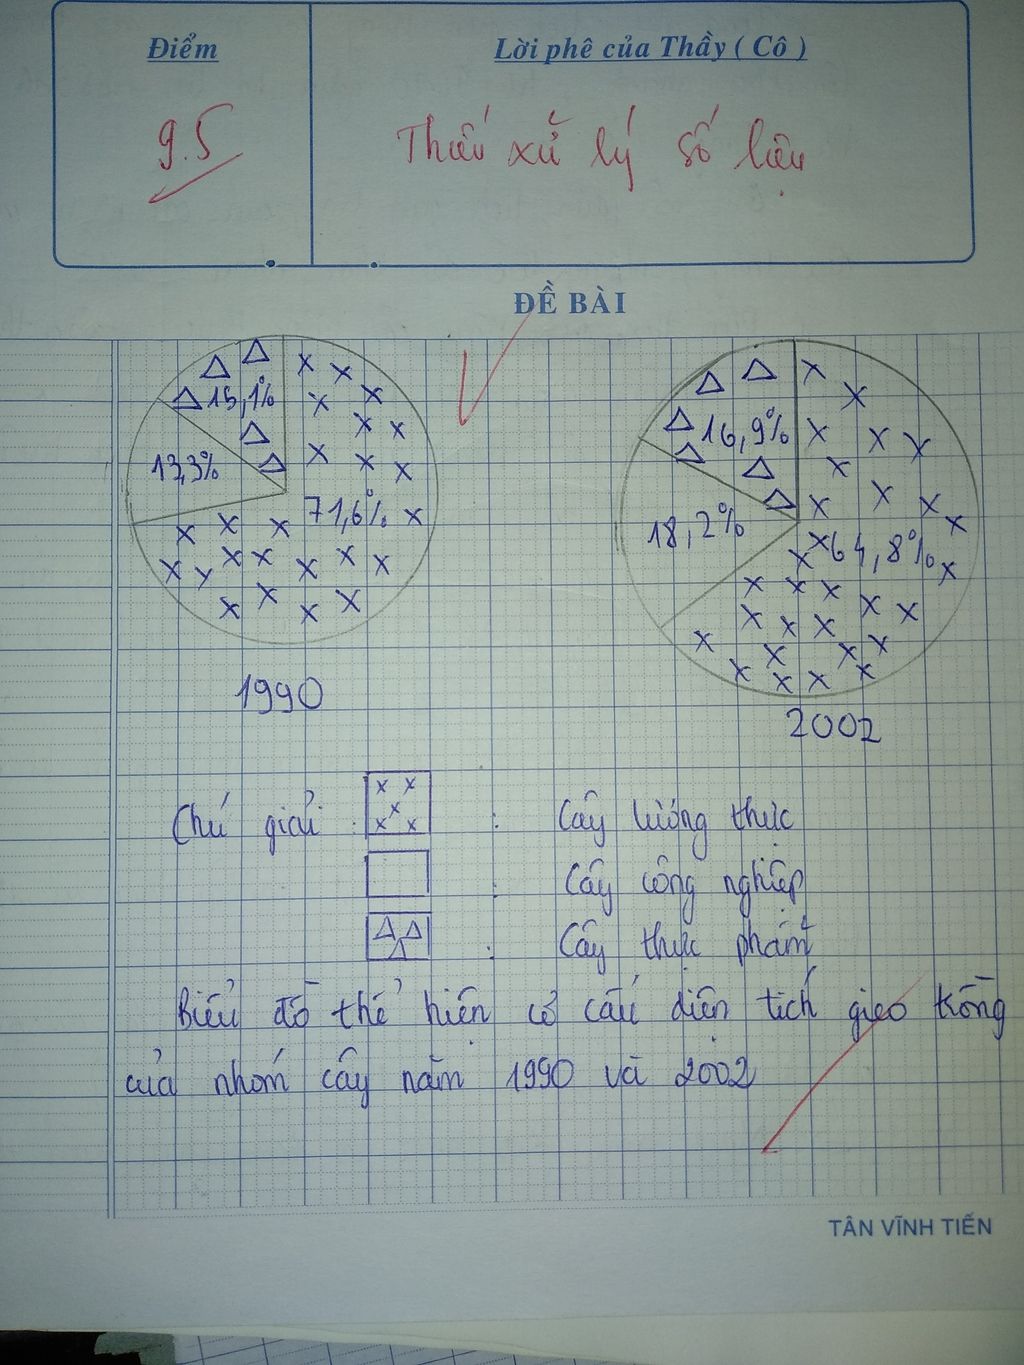 Điểm
Lời phê của Thầy ( Cô )
9.5
Thiếu xử lý số liệu
ĐỀ BÀI
15,1%
13,3%
71,6%
1990
16,9%
18,2%
64,8%
2002
Chú giải :
: Cây lương thực
: Cây công nghiệp
: Cây thực phẩm
Biểu đồ thể hiện cơ cấu diện tích gieo trồng
của nhóm cây năm 1990 và 2002
TÂN VĨNH TIẾN